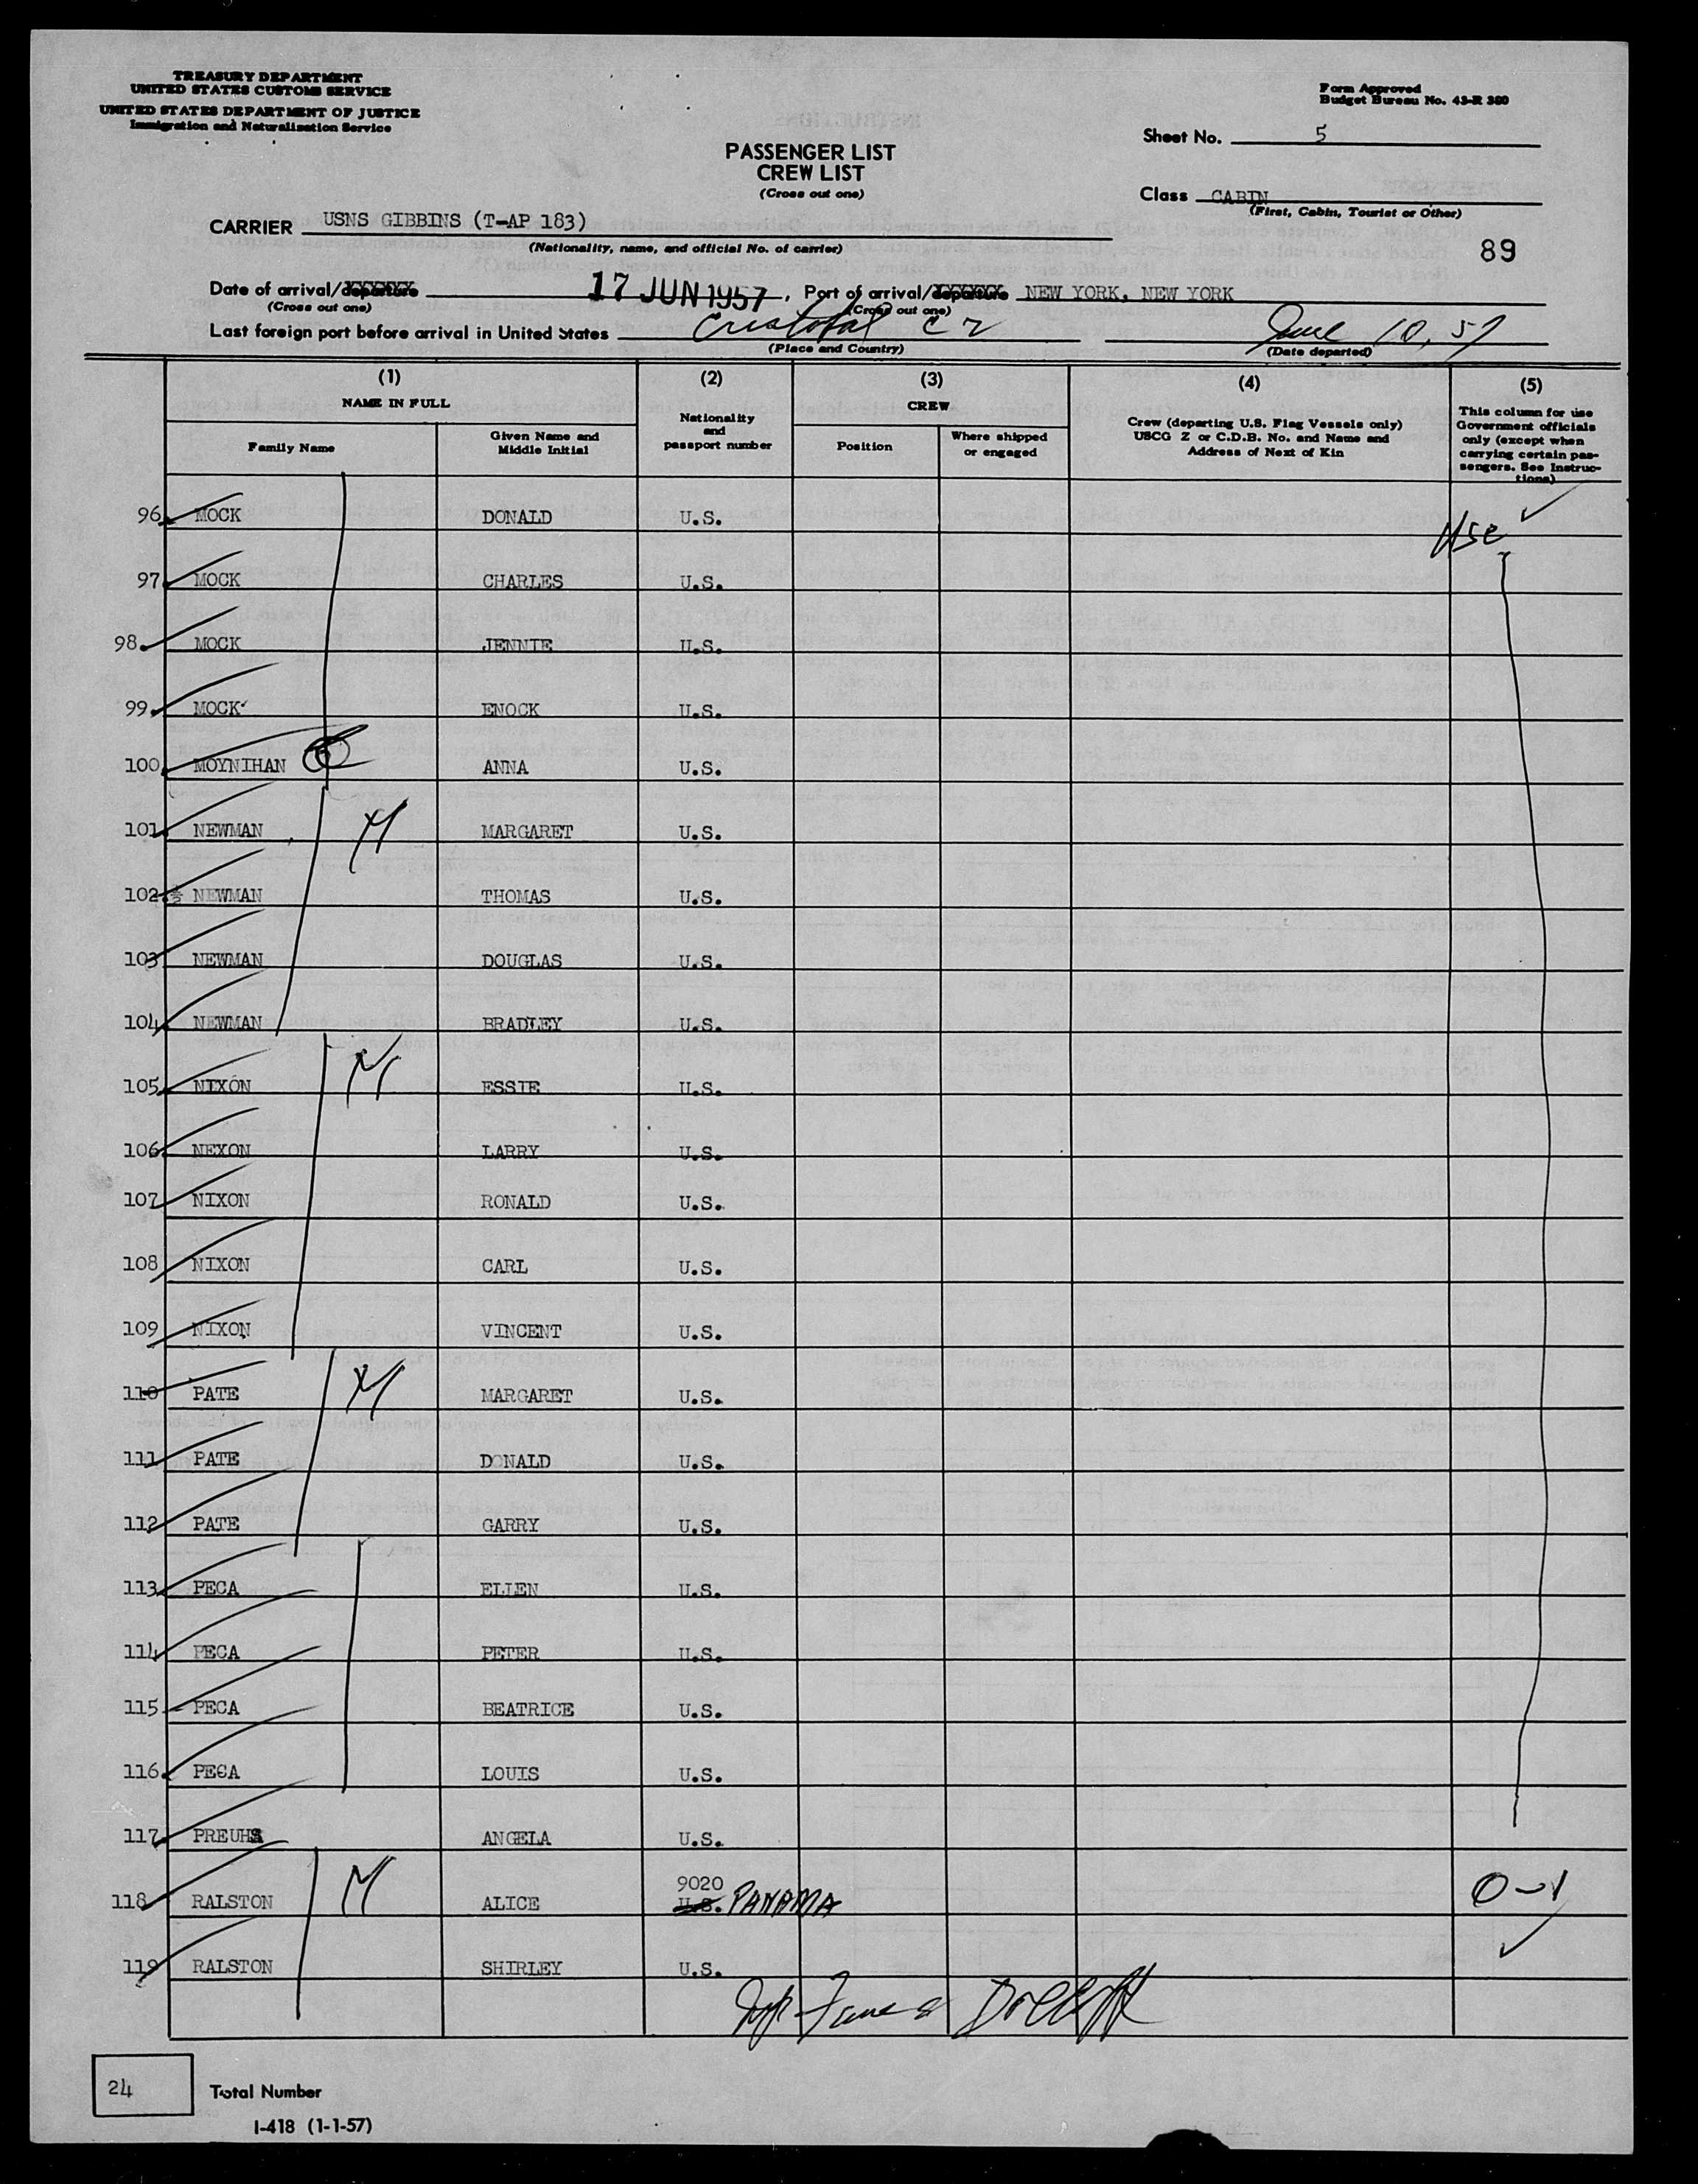 TREASURY DEPARTMENT
UNITED STATES CUSTOMS SERVICE
UNITED STATES DEPARTMENT OF JUSTICE
Immigration and Naturalization Service
Form Approved
Budget Bureau No. 43-R 380
Sheet No. 5
PASSENGER LIST
CREW LIST
(Cross out one)
Class CABIN
(First, Cabin, Tourist or Other)
CARRIER USNS GIBBINS (T-AP 183)
(Nationality, name, and official No. of carrier)
89
Date of arrival/departure 17 JUN 1957, Port of arrival/departure NEW YORK, NEW YORK
(Cross out one) (Cross out one)
Last foreign port before arrival in United States Cristobal C Z June 10, 57
(Place and Country) (Date departed)
(1) (2) (3) (4) (5)
NAME IN FULL
Family Name
Given Name and Middle Initial
Nationality and passport number
CREW
Position
Where shipped or engaged
Crew (departing U.S. Flag Vessels only)
USCG Z or C.D.B. No. and Name and
Address of Next of Kin
This column for use
Government officials
only (except when
carrying certain pas-
sengers. See Instruc-
tions)
96 MOCK DONALD U.S. USC
97 MOCK CHARLES U.S.
98. MOCK JENNIE U.S.
99. MOCK ENOCK U.S.
100 MOYNIHAN ANNA U.S.
101 NEWMAN MARGARET U.S.
102 NEWMAN THOMAS U.S.
103 NEWMAN DOUGLAS U.S.
104 NEWMAN BRADLEY U.S.
105 NIXON ESSIE U.S.
106 NEXON LARRY U.S.
107 NIXON RONALD U.S.
108 NIXON CARL U.S.
109 NIXON VINCENT U.S.
110 PATE MARGARET U.S.
111 PATE DONALD U.S.
112 PATE GARRY U.S.
113 PECA ELLEN U.S.
114 PECA PETER U.S.
115 PECA BEATRICE U.S.
116. PECA LOUIS U.S.
117 PREUHS ANGELA U.S.
9020
118 RALSTON ALICE U.S. PANAMA 0-1
119 RALSTON SHIRLEY U.S.
24 Total Number
I-418 (1-1-57)